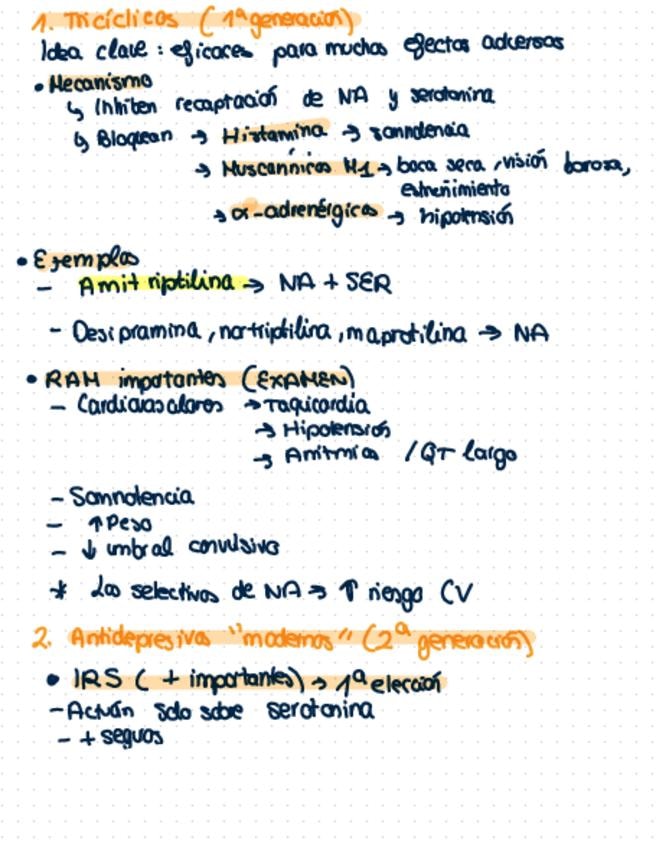 1. Tricíclicos (1ª generación)
Idea clave : eficaces para muchos efectos adversos
• Mecanismo
↳ Inhiben recaptación de NA y serotonina
↳ Bloquean → Histamina → somnolencia
→ Muscarínicos M1 → boca seca, visión borrosa,
estreñimiento
→ α-adrenérgicos → hipotensión
• Ejemplos
- Amitriptilina → NA + SER
- Desipramina, nortriptilina, maprotilina → NA
• RAM importantes (EXAMEN)
- Cardiovasculares → Taquicardia
→ Hipotensión
→ Arritmias / QT largo
- Somnolencia
- ↑ Peso
- ↓ umbral convulsivo
* Los selectivos de NA → ↑ riesgo CV
2. Antidepresivos "modernos" (2ª generación)
• IRS ( + importantes) → 1ª elección
- Actúan solo sobre serotonina
- + seguros